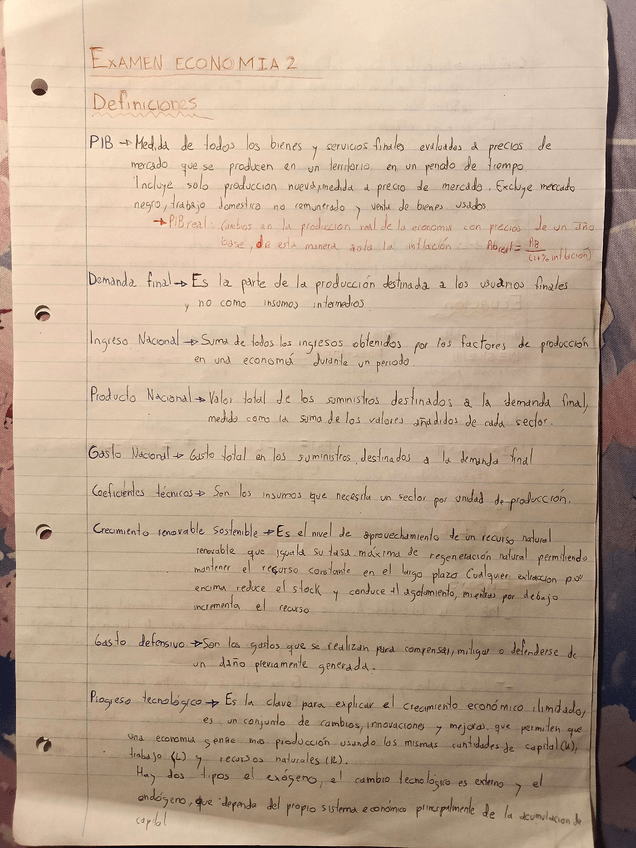 EXAMEN ECONOMIA 2
Definiciones
PIB → Medida de todos los bienes y servicios finales evaluados a precios de
mercado que se producen en un territorio en un periodo de tiempo
Incluye solo produccion nueva, medida a precio de mercado. Excluye mercado
negro, trabajo domestico no remunerado y venta de bienes usados
→ PIB real: Cambios en la produccion real de la economia con precios de un año
base, de esta manera aisla la inflación: PIB real = PIB / (1+% inflacion)
Demanda final → Es la parte de la producción destinada a los usuarios finales
y no como insumos intermedios
Ingreso Nacional → Suma de todos los ingresos obtenidos por los factores de producción
en una economía durante un periodo.
Producto Nacional → Valor total de los suministros destinados a la demanda final,
medido como la suma de los valores añadidos de cada sector.
Gasto Nacional → Gasto total en los suministros, destinados a la demanda final
Coeficientes técnicos → Son los insumos que necesita un sector por unidad de producción.
Crecimiento renovable sostenible → Es el nivel de aprovechamiento de un recurso natural
renovable que iguala su tasa máxima de regeneración natural permitiendo
mantener el recurso constante en el largo plazo Cualquier extraccion por
encima reduce el stock y conduce al agotamiento, mientras por debajo
incrementa el recurso
Gasto defensivo → Son los gastos que se realizan para compensar, mitigar o defenderse de
un daño previamente generado.
Progreso tecnológico → Es la clave para explicar el crecimiento económico ilimitado,
es un conjunto de cambios, innovaciones y mejoras que permiten que
una economia genere mas producción usando las mismas cantidades de capital (K),
trabajo (L) y recursos naturales (R).
Hay dos tipos el exógeno, el cambio tecnológico es externo y el
endógeno, que depende del propio sistema económico principalmente de la acumulacion de
capital